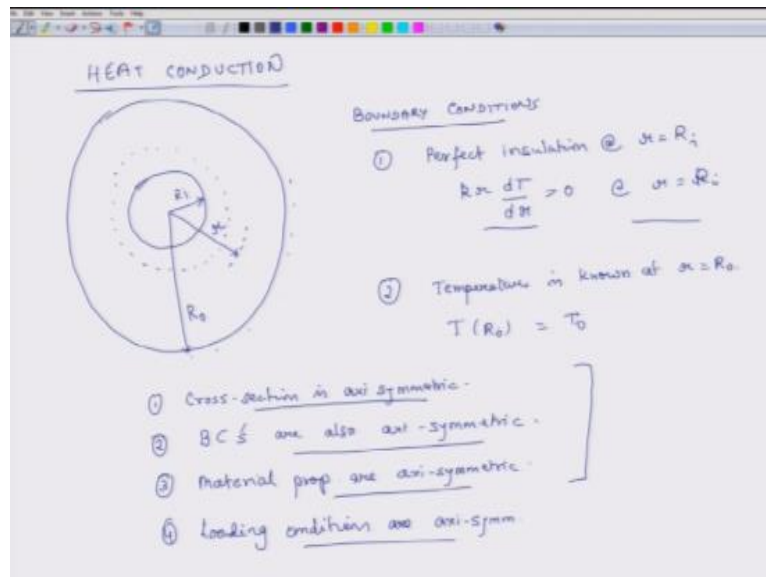 HEAT CONDUCTION
Ri
r
Ro
BOUNDARY CONDITIONS
① Perfect insulation @ r = Ri
kr dT/dr = 0 @ r = Ri
② Temperature is known at r = Ro.
T(Ro) = To
① Cross-section is axi symmetric.
② BC's are also axi-symmetric.
③ Material prop are axi-symmetric.
④ Loading conditions are axi-symm.